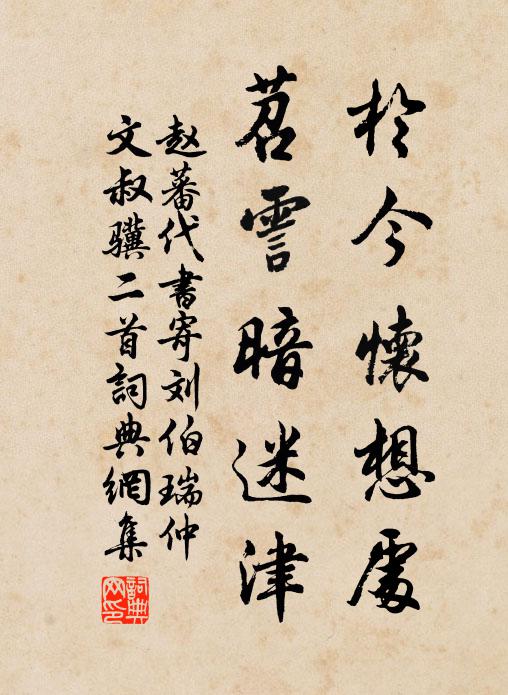 於今懷想處
苕霅暗迷津
赵蕃代書寄刘伯瑞仲
文叔骥二首詞典網集
詞典网印